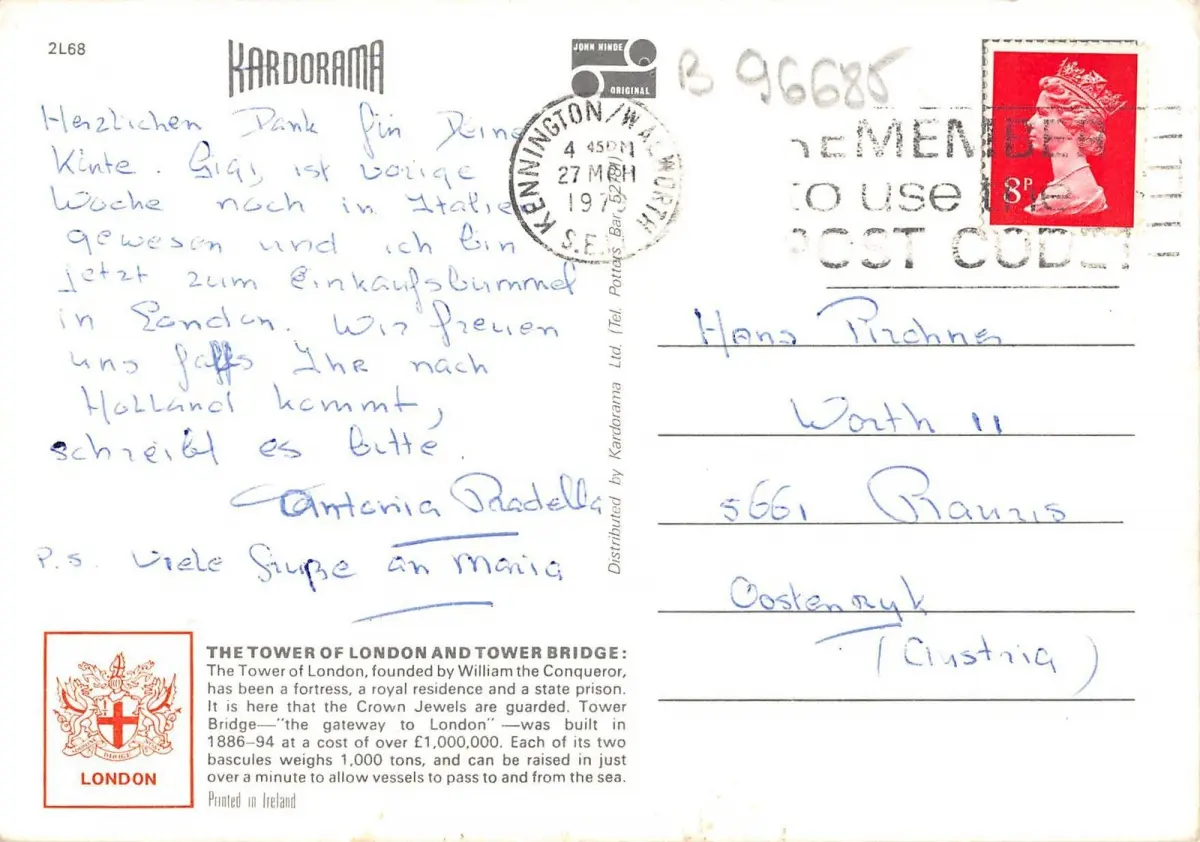 2L68
KARDORAMA
JOHN HINDE
ORIGINAL
B 96685
KENNINGTON/WALWORTH
4 45PM
27 MCH
197
S.E.
REMEMBER
to use the
POST CODE
8P
Herzlichen Dank für Deine
Kinte. Gigi ist vorige
Woche noch in Italie
gewesen und ich bin
jetzt zum Einkaufsbummel
in London. Wir freuen
uns falls Ihr nach
Holland kommt,
schreibt es bitte.
Antonia Pradella
P.S. Viele Grüße an Maria
Distributed by Kardorama Ltd. (Tel. Potters Bar
Hans Pirchner
Wörth 11
5661 Rauris
Oostenryk
(Austria)
LONDON
THE TOWER OF LONDON AND TOWER BRIDGE:
The Tower of London, founded by William the Conqueror,
has been a fortress, a royal residence and a state prison.
It is here that the Crown Jewels are guarded. Tower
Bridge—"the gateway to London" —was built in
1886–94 at a cost of over £1,000,000. Each of its two
bascules weighs 1,000 tons, and can be raised in just
over a minute to allow vessels to pass to and from the sea.
Printed in Ireland